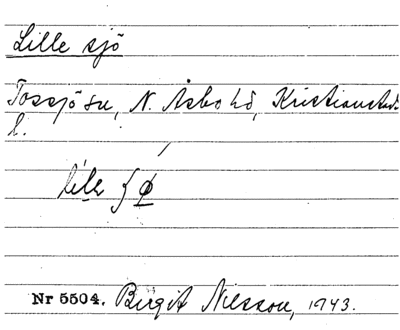 Lille sjö
Tossjö sn, N. Åsbo hd, Kristianstads
l.
lile ʃø
Nr 5504. Birgit Nilsson, 1943.